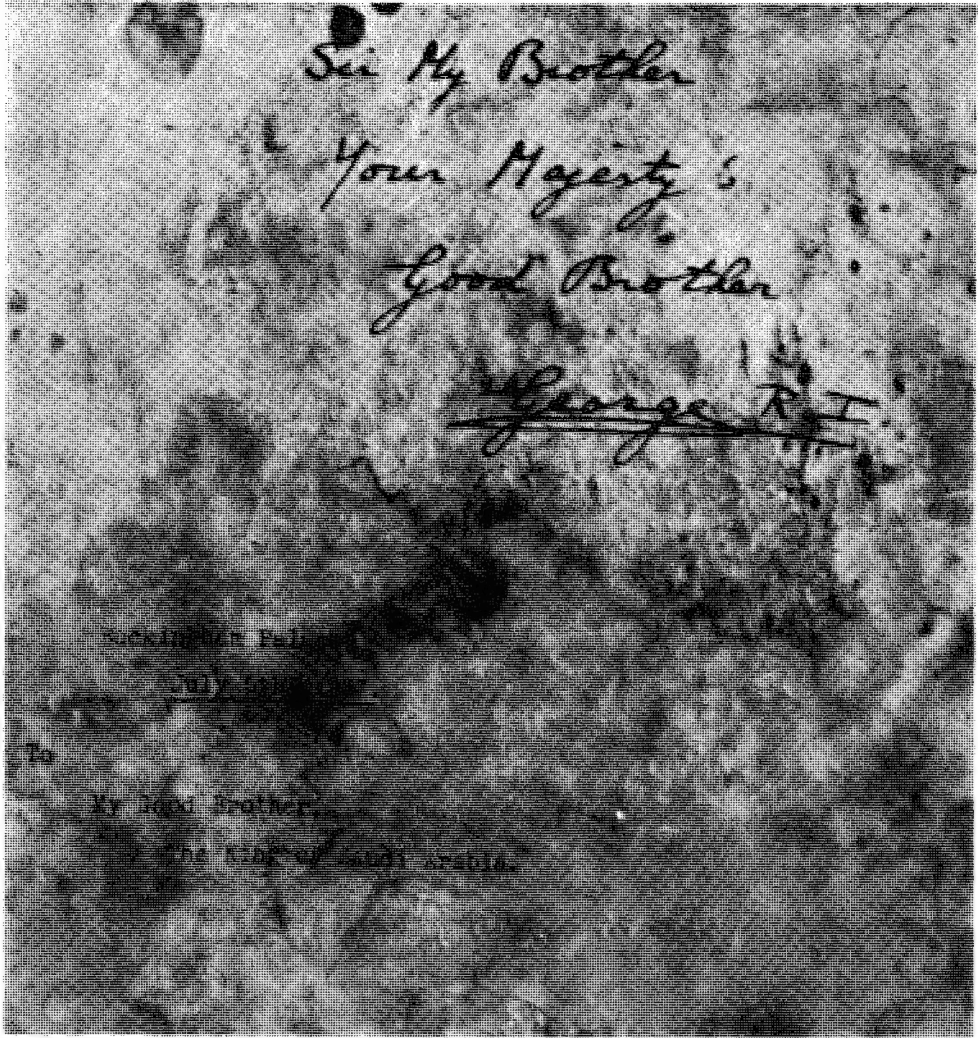 Sir My Brother
Your Majesty's
Good Brother
George R I
Buckingham Palace
July
To
My Good Brother,
The King of Saudi Arabia.